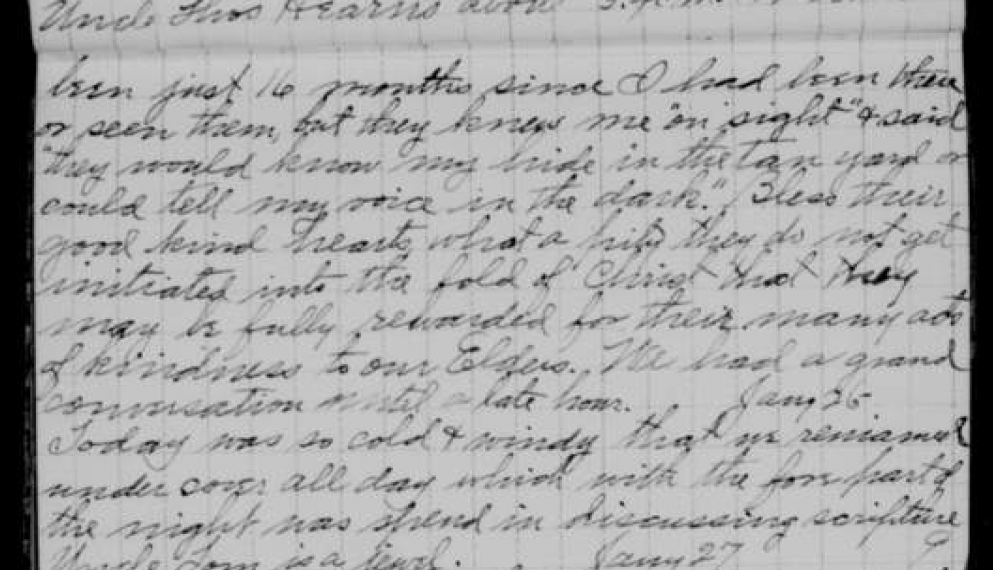 Uncle Thos Hearns about
been just 16 months since I had been there
or seen them, but they knew me "on sight" & said
"they would know my hide in the tan yard or
could tell my voice in the dark." Bless their
good kind hearts, what a pity they do not get
initiated into the fold of Christ that they
may be fully rewarded for their many acts
of kindness to our Elders. We had a grand
conversation until a late hour. Jany 26
Today was so cold & windy that we remained
under cover all day which with the fore part of
the night was spend in discussing scripture
Uncle Tom is a jewel. Jany 27